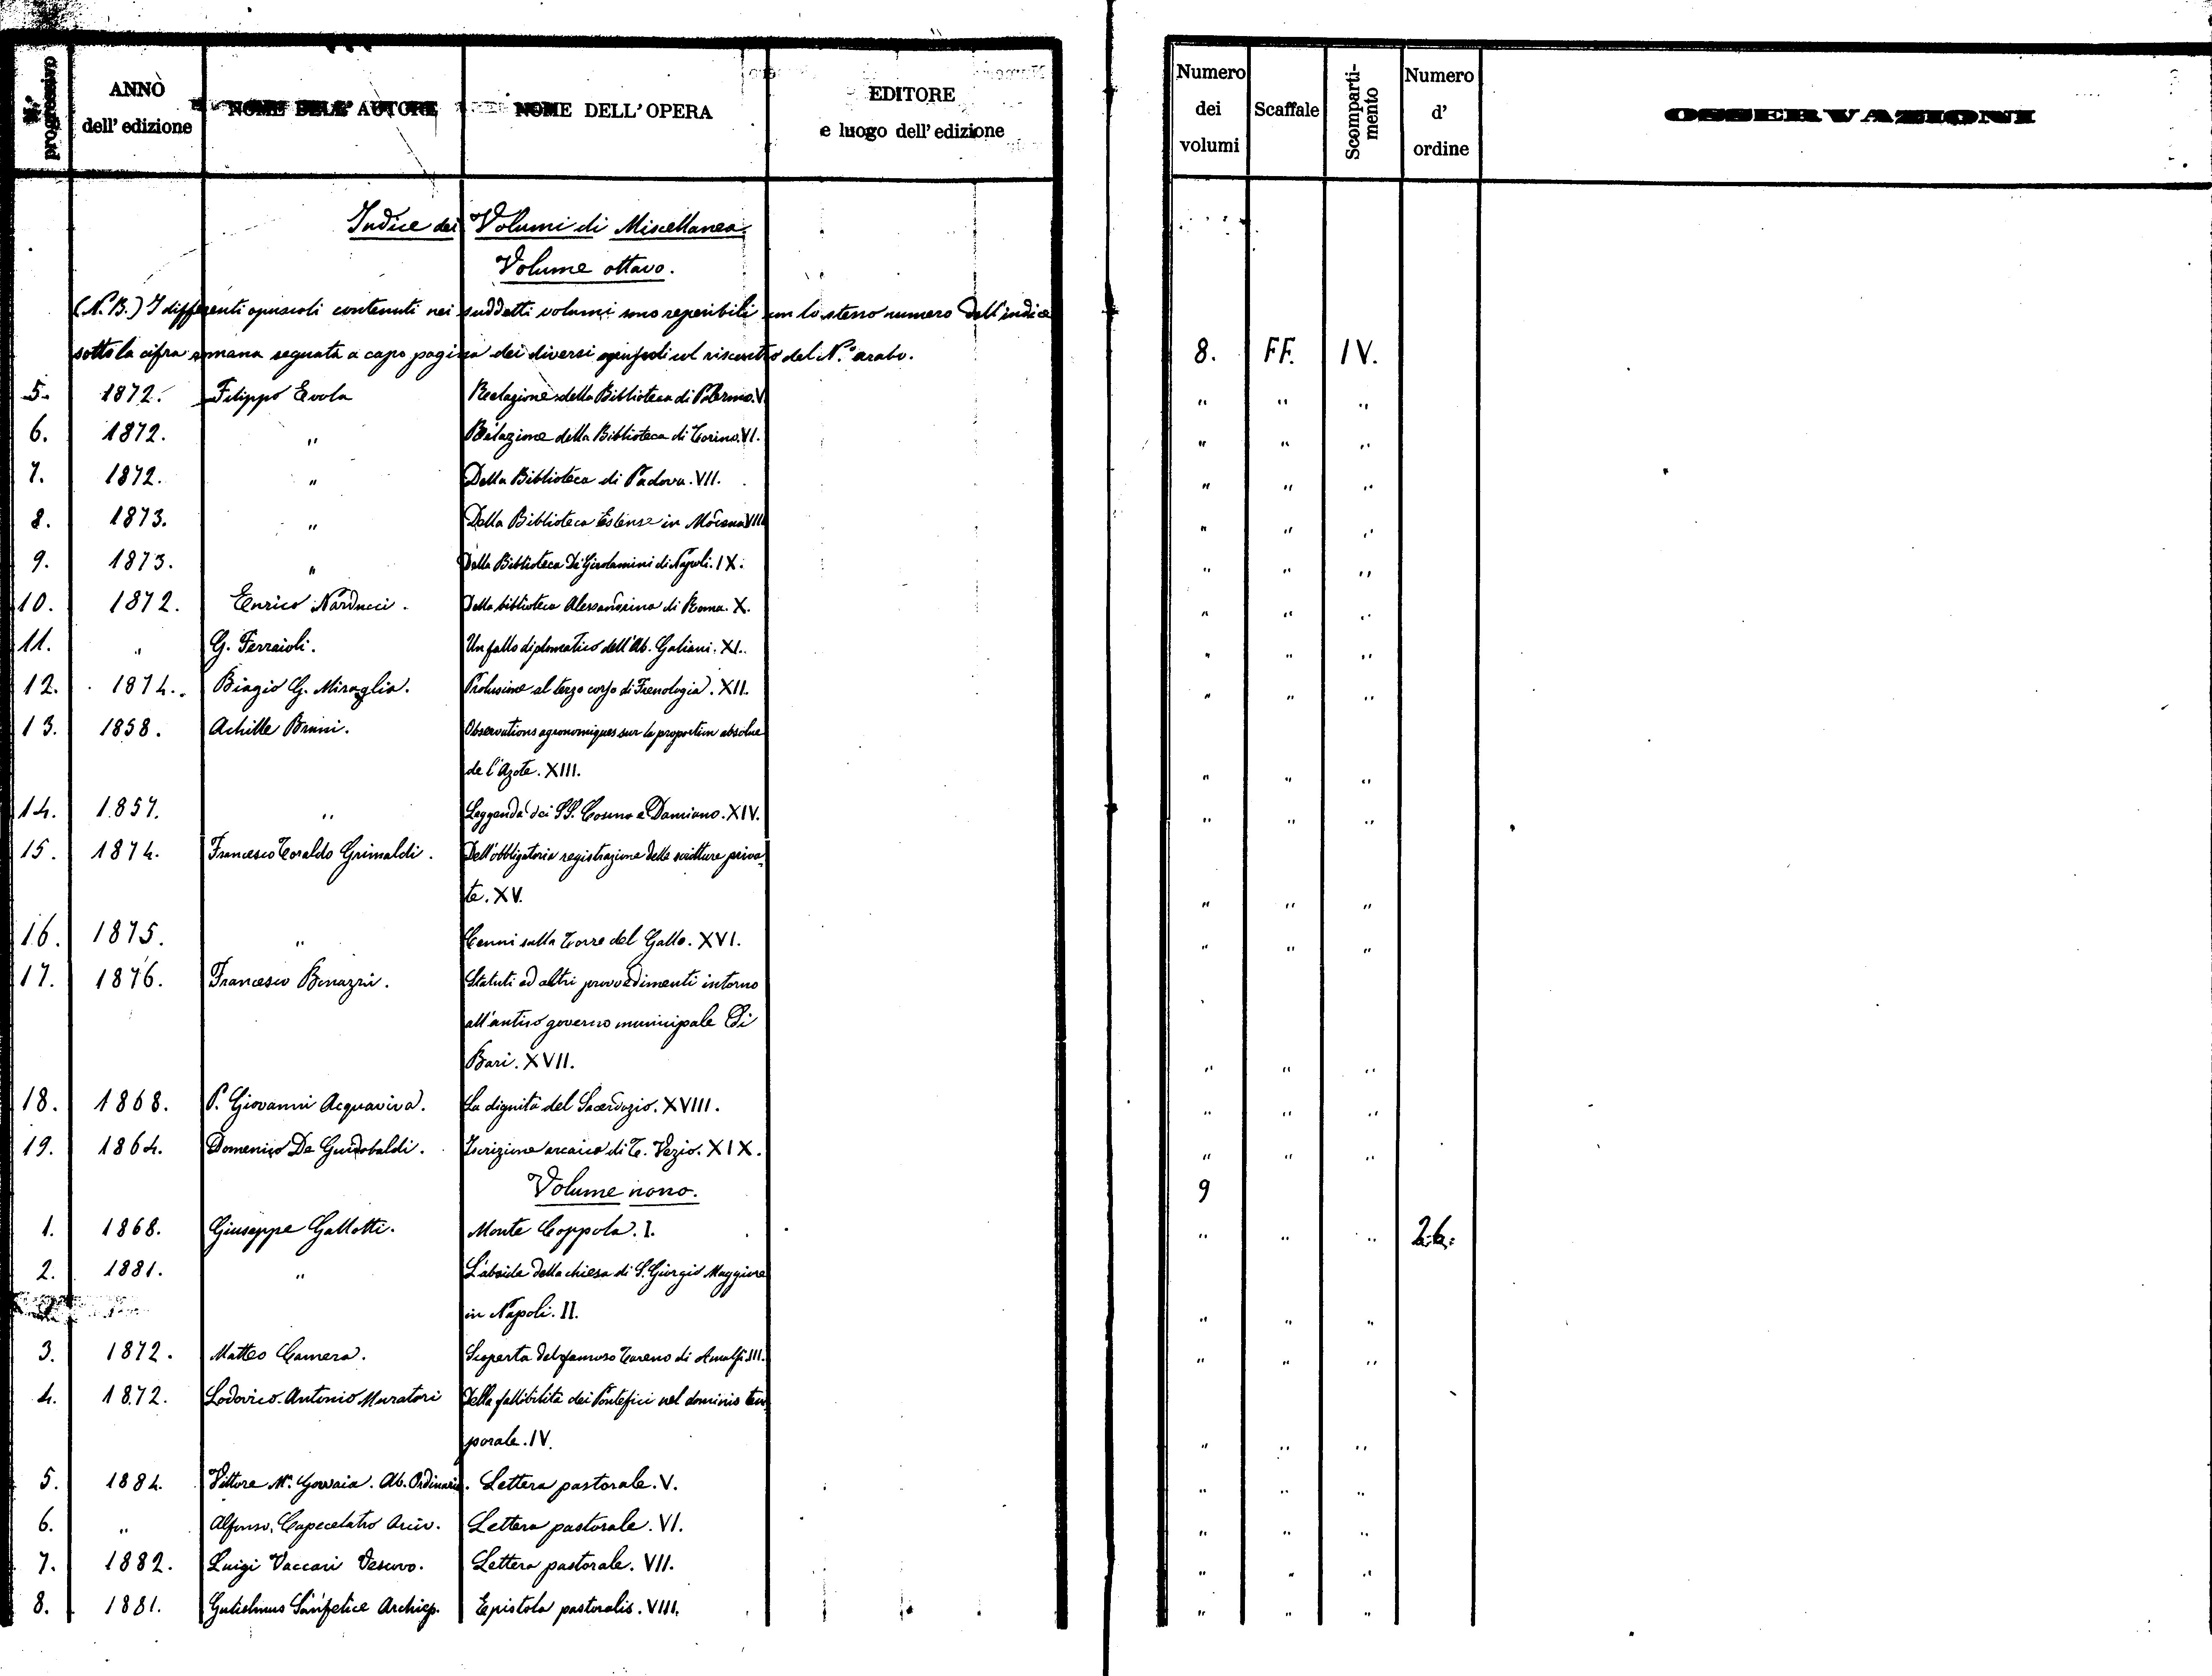 N.° progressivo | ANNO dell' edizione | NOME DELL' AUTORE | NOME DELL' OPERA | EDITORE e luogo dell' edizione | Numero dei volumi | Scaffale | Scompartimento | Numero d' ordine | OSSERVAZIONI
Indice dei Volumi di Miscellanea.
Volume ottavo.
(N. B.) I differenti opuscoli contenuti nei suddetti volumi sono reperibili con lo stesso numero dell'indice
sotto la cifra romana segnata a capo pagina dei diversi opuscoli col riscontro del N.° arabo. | 8. | FF. | IV.
5. | 1872. | Filippo Evola | Relazione della Biblioteca di Palermo. V. | " | " | "
6. | 1872. | " | Relazione della Biblioteca di Torino. VI. | " | " | "
7. | 1872. | " | Della Biblioteca di Padova. VII. | " | " | "
8. | 1873. | " | Della Biblioteca Estense in Modena VIII | " | " | "
9. | 1873. | " | Della Biblioteca de' Girolamini di Napoli. IX. | " | " | "
10. | 1872. | Enrico Narducci. | Della biblioteca Alessandrina di Roma. X. | " | " | "
11. | " | G. Ferraioli. | Un fallo diplomatico dell'Ab. Galiani. XI. | " | " | "
12. | 1874. | Biagio G. Miraglia. | Prolusione al terzo corso di Frenologia. XII. | " | " | "
13. | 1858. | Achille Bruni. | Observations agronomiques sur la proportion absolue
de l'Azote. XIII. | " | " | "
14. | 1857. | " | Leggenda dei SS. Cosmo e Damiano. XIV. | " | " | "
15. | 1874. | Francesco Toraldo Grimaldi. | Dell'obbligatoria registrazione delle scritture priva-
te. XV. | " | " | "
16. | 1875. | " | Cenni sulla Torre del Gallo. XVI. | " | " | "
17. | 1876. | Francesco Bonazzi. | Statuti ed altri provvedimenti intorno
all'antico governo municipale di
Bari. XVII. | " | " | "
18. | 1868. | P. Giovanni Acquaviva. | La dignità del Sacerdozio. XVIII. | " | " | "
19. | 1864. | Domenico De Guidobaldi. | Iscrizione arcaica di T. Vezio. XIX. | " | " | "
Volume nono. | 9
1. | 1868. | Giuseppe Gallotti. | Monte Coppola. I. | " | " | " | 26.
2. | 1881. | " | L'abside della chiesa di S. Giorgio Maggiore
in Napoli. II. | " | " | "
3. | 1872. | Matteo Camera. | Scoperta del famoso Tareno di Amalfi. III. | " | " | "
4. | 1872. | Lodovico Antonio Muratori | Della fallibilità dei Pontefici nel dominio tem-
porale. IV. | " | " | "
5. | 1884. | Vittore M. Ab. Ordinario. | Lettera pastorale. V. | " | " | "
6. | " | Alfonso Capecelatro Arciv. | Lettera pastorale. VI. | " | " | "
7. | 1882. | Luigi Vaccari Vescovo. | Lettera pastorale. VII. | " | " | "
8. | 1881. | Gulielmus Sanfelice Archiep. | Epistola pastoralis. VIII. | " | " | "